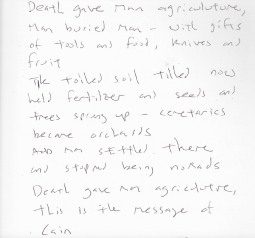 Death gave man agriculuture,
Man buried man – with gifts
of tools and food, knives and
fruit
The toiled soil tilled now
held fertilizer and seeds and
trees sprung up – cemetaries
became orchards
And man settled there
and stopped being nomads
Death gave man agriculutre,
this is the message of
Cain